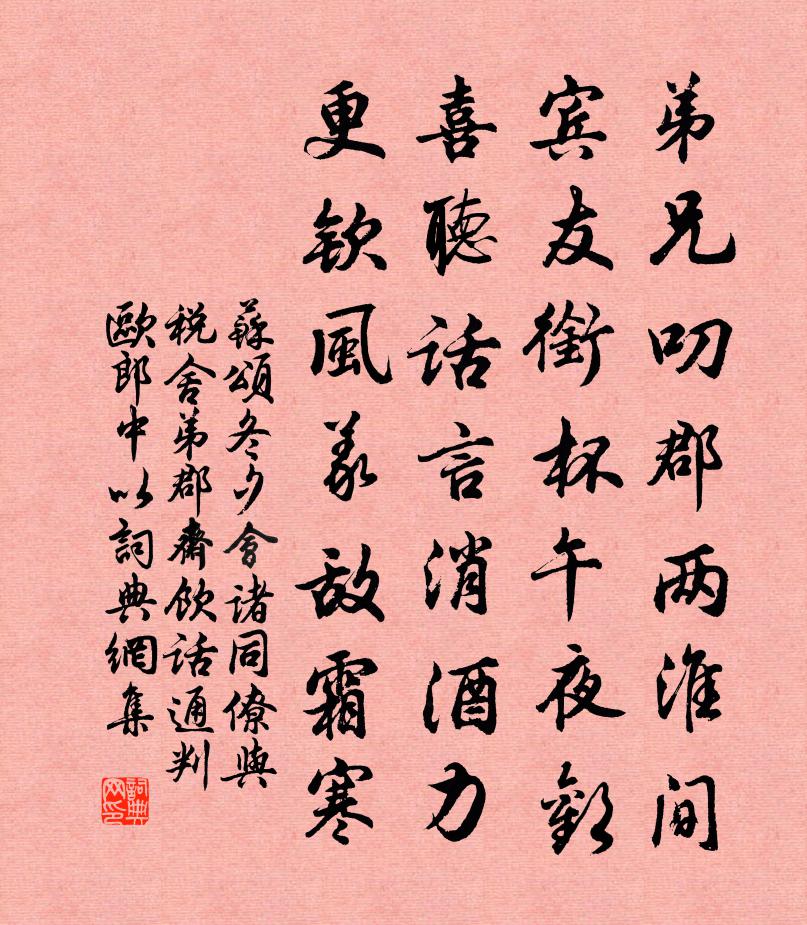 弟兄叨郡两淮间
宾友銜杯午夜歡
喜聽话言消酒力
更欽風義敌霜寒
蘇頌冬夕會诸同僚與
税舍弟郡齋飲话通判
歐郎中以詞典網集
詞典网印